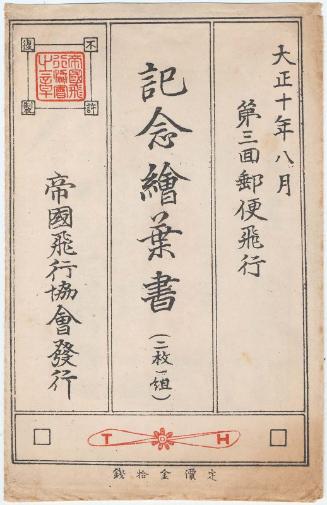 大正十年八月
第三回郵便飛行
記念繪葉書
(二枚一組)
不許復製
帝國飛行協會發行
T H
定價金拾錢